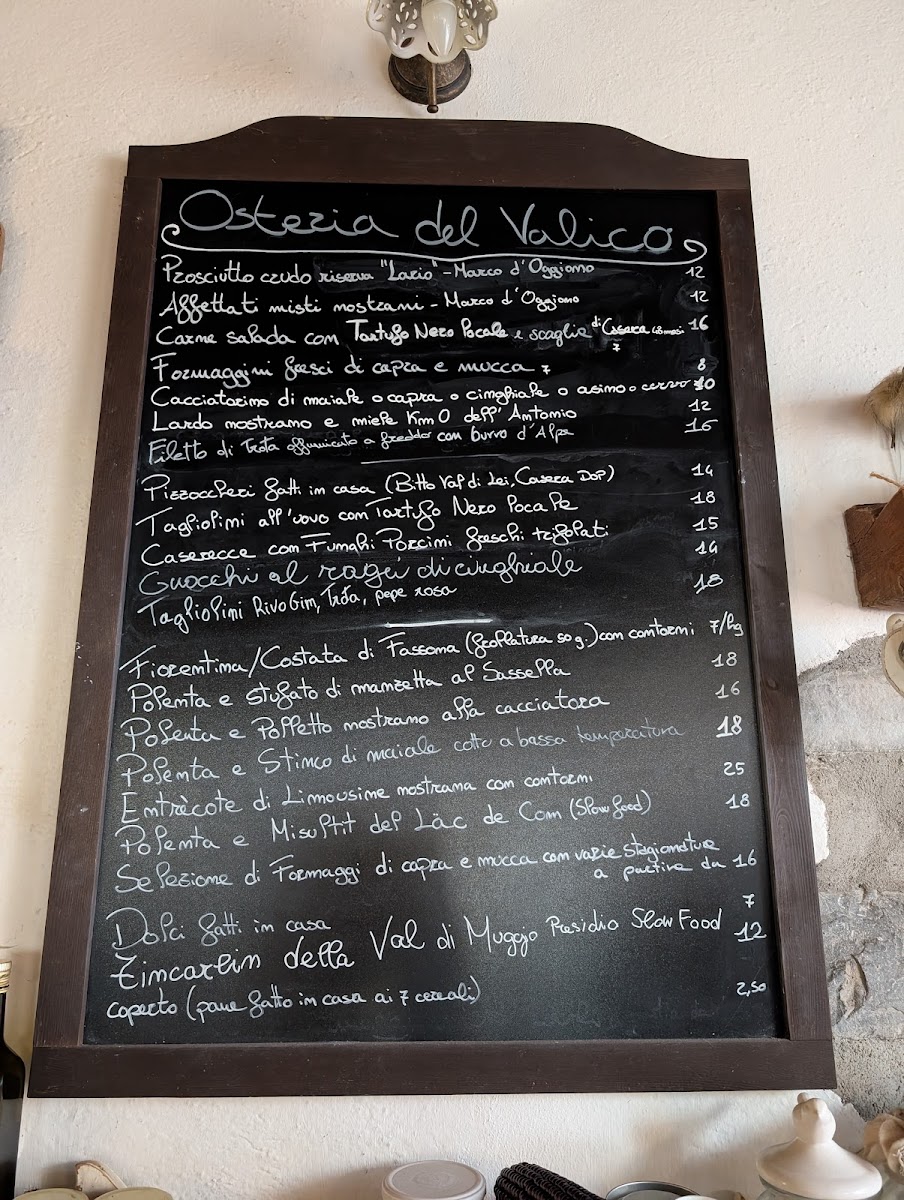 Osteria del Valico
Prosciutto crudo riserva "Lario" - Marco d'Oggiono 12
Affettati misti nostrani - Marco d'Oggiono 12
Carne salada con Tartufo Nero Locale e scaglie di Casera 16
7
Formaggini fresci di capra e mucca 7 8
Cacciatorino di maiale o capra o cinghiale o asino o cervo 10
Lardo nostrano e miele Km 0 dell'Antonio 12
Filetto di Trota affumicato a freddo con burro d'Alpe 16
Pizzoccheri fatti in casa (Bitto Val di Lei, Casera DOP) 14
Tagliolini all'uovo con Tartufo Nero Locale 18
Caserecce con Funghi Porcini freschi trifolati 15
Gnocchi al ragù di cinghiale 14
Tagliolini RivoGin, Trota, pepe rosa 18
Fiorentina/Costata di Fassona (frollatura 50 g.) con contorni 7/hg
Polenta e stufato di manzetta al Sassella 18
Polenta e Polletto nostrano alla cacciatora 16
Polenta e Stinco di maiale cotto a bassa temperatura 18
Entrècote di Limousine nostrana con contorni 25
Polenta e Misultit del Läc de Com (Slow food) 18
Selezione di Formaggi di capra e mucca con varie stagionature
a partire da 16
Dolci fatti in casa 7
Zincarlin della Val di Muggio Presidio Slow Food 12
coperto (pane fatto in casa ai 7 cereali) 2,50